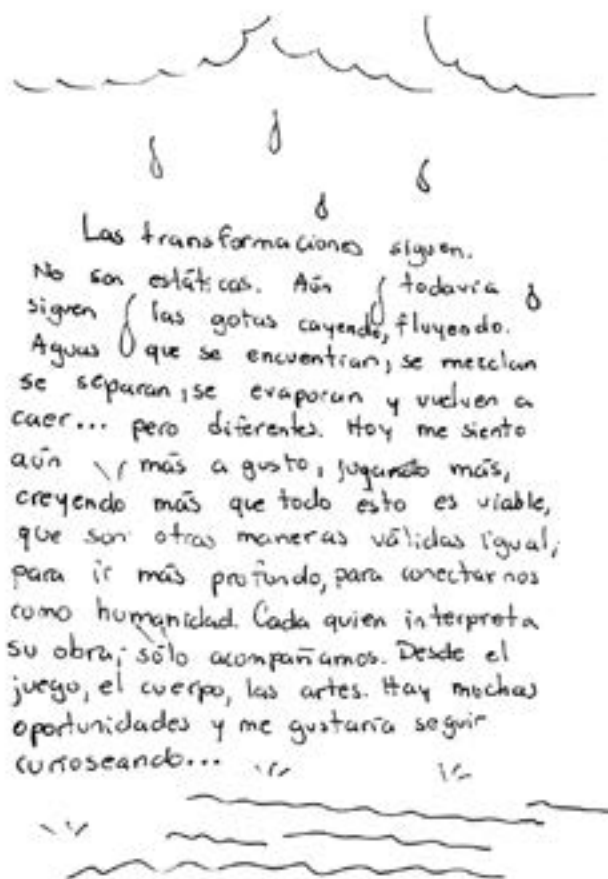 Las transformaciones siguen.
No son estáticas. Aún todavía
siguen las gotas cayendo, fluyendo.
Aguas que se encuentran, se mezclan
se separan, se evaporan y vuelven a
caer... pero diferentes. Hoy me siento
aún más a gusto, jugando más,
creyendo más que todo ésto es viable,
que son otras maneras válidas igual,
para ir más profundo, para conectarnos
como humanidad. Cada quien interpreta
su obra, sólo acompañamos. Desde el
juego, el cuerpo, las artes. Hay muchas
oportunidades y me gustaría seguir
curioseando...